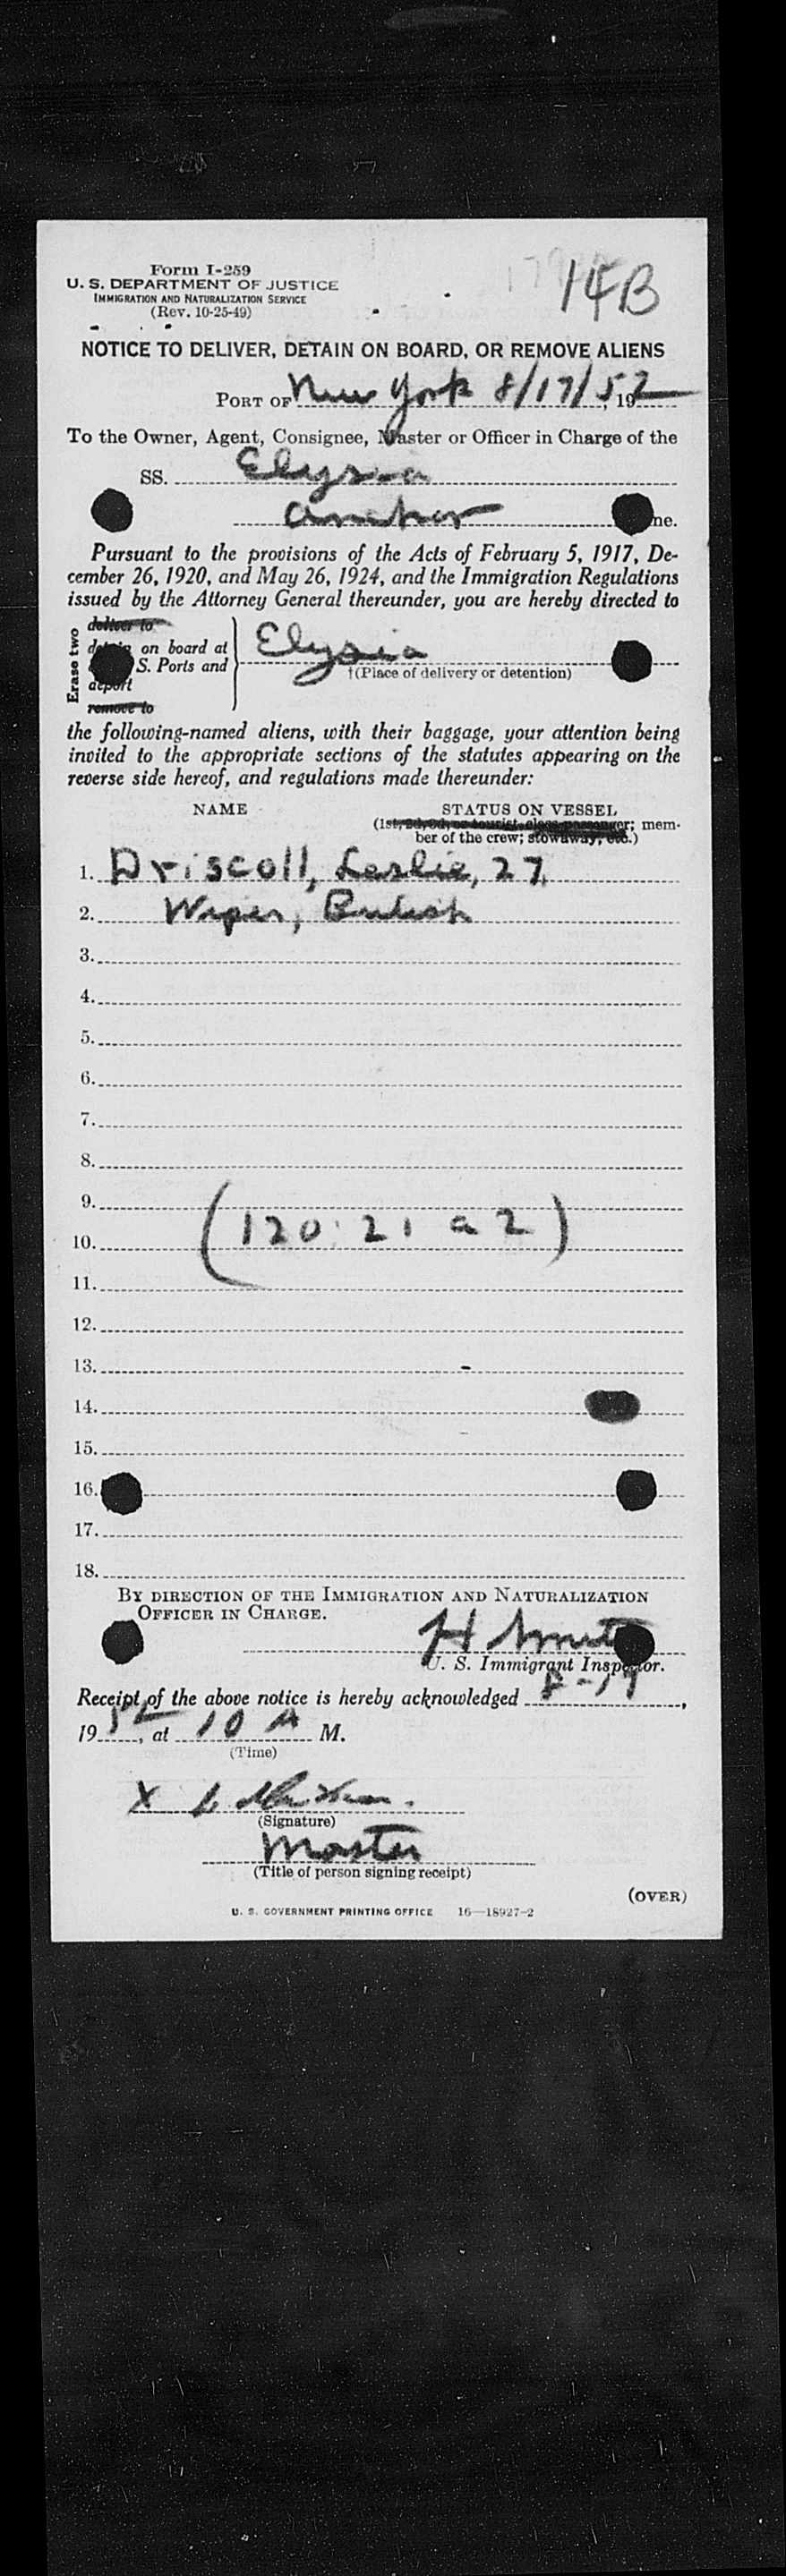 Form I-259
U. S. DEPARTMENT OF JUSTICE
IMMIGRATION AND NATURALIZATION SERVICE
(Rev. 10-25-49)
14B
NOTICE TO DELIVER, DETAIN ON BOARD, OR REMOVE ALIENS
PORT OF New York 8/17/52, 19
To the Owner, Agent, Consignee, Master or Officer in Charge of the
SS. Elysia
Anchor ne.
Pursuant to the provisions of the Acts of February 5, 1917, De-
cember 26, 1920, and May 26, 1924, and the Immigration Regulations
issued by the Attorney General thereunder, you are hereby directed to
Erase two
deliver to
on board at
S. Ports and
deport
remove to
Elysia
†(Place of delivery or detention)
the following-named aliens, with their baggage, your attention being
invited to the appropriate sections of the statutes appearing on the
reverse side hereof, and regulations made thereunder:
NAME STATUS ON VESSEL
(1st, 2d, 3d, or tourist, class passenger; mem-
ber of the crew; stowaway, etc.)
1. Driscoll, Leslie, 27,
2. Wiper, British
3.
4.
5.
6.
7.
8.
9.
(120.21 a 2)
10.
11.
12.
13.
14.
15.
16.
17.
18.
BY DIRECTION OF THE IMMIGRATION AND NATURALIZATION
OFFICER IN CHARGE.
H
U. S. Immigrant Inspector.
Receipt of the above notice is hereby acknowledged 8-19,
1952, at 10 A M.
(Time)
X
(Signature)
Master
(Title of person signing receipt)
(OVER)
U. S. GOVERNMENT PRINTING OFFICE 16—18927-2